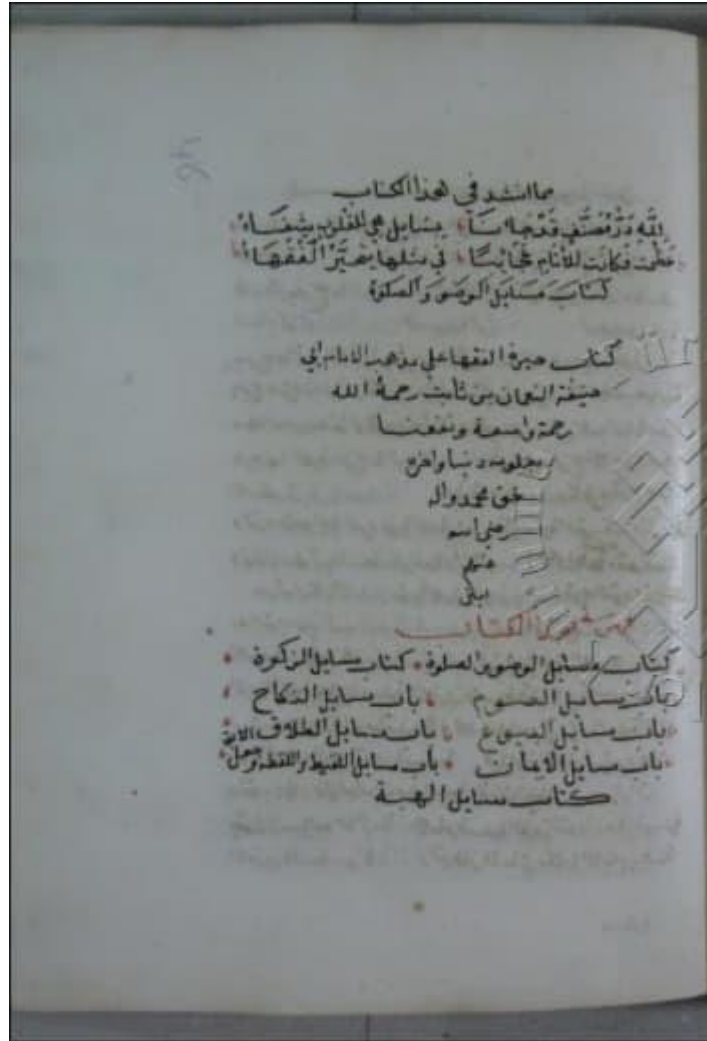 مما انشد في هذا الكتاب
لله در مصنف قد جاءنا مسايل هي للقلوب شفاء
عظمت فكانت للأنام عجائبًا في مثلها يتحير الفقهاء
كتاب مسايل الوضو والصلوة
كتاب حيرة الفقها على مذهب الامام ابي
حنيفة النعمان بن ثابت رحمة الله
رحمة واسعة ونفعنا
بعلومه دنيا واخرة
بحق محمد واله
رضي الله
عنهم
هذا الكتاب
كتاب مسايل الوضو والصلوة كتاب مسايل الزكوة
باب مسايل الصوم باب مسايل النكاح
باب مسايل البيوع باب مسايل الطلاق
باب مسايل الايمان باب مسايل اللقيط واللقطة وجعل الابق
كتاب مسايل الهبة